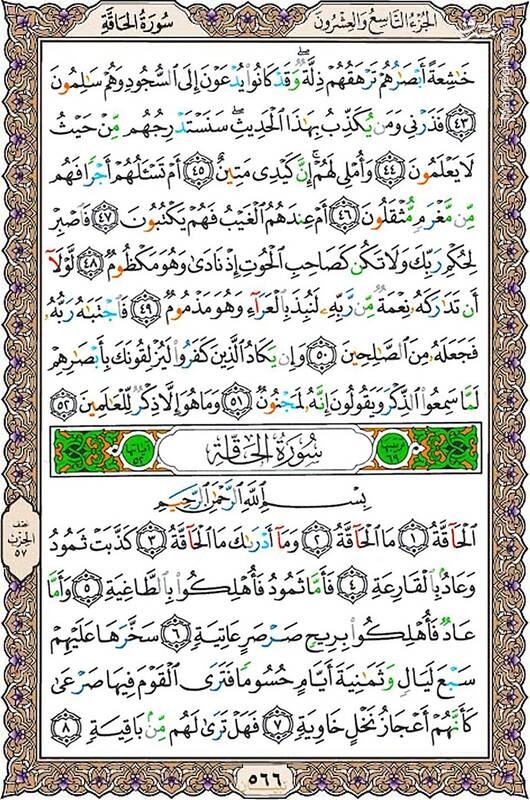 الجزء التاسع والعشرون
سورة الحاقة
خَٰشِعَةً أَبْصَٰرُهُمْ تَرْهَقُهُمْ ذِلَّةٌ ۖ وَقَدْ كَانُوا۟ يُدْعَوْنَ إِلَى ٱلسُّجُودِ وَهُمْ سَٰلِمُونَ
﴿٤٣﴾ فَذَرْنِى وَمَن يُكَذِّبُ بِهَٰذَا ٱلْحَدِيثِ ۖ سَنَسْتَدْرِجُهُم مِّنْ حَيْثُ
لَا يَعْلَمُونَ ﴿٤٤﴾ وَأُمْلِى لَهُمْ ۚ إِنَّ كَيْدِى مَتِينٌ ﴿٤٥﴾ أَمْ تَسْـَٔلُهُمْ أَجْرًا فَهُم
مِّن مَّغْرَمٍ مُّثْقَلُونَ ﴿٤٦﴾ أَمْ عِندَهُمُ ٱلْغَيْبُ فَهُمْ يَكْتُبُونَ ﴿٤٧﴾ فَٱصْبِرْ
لِحُكْمِ رَبِّكَ وَلَا تَكُن كَصَاحِبِ ٱلْحُوتِ إِذْ نَادَىٰ وَهُوَ مَكْظُومٌ ﴿٤٨﴾ لَّوْلَآ
أَن تَدَٰرَكَهُۥ نِعْمَةٌ مِّن رَّبِّهِۦ لَنُبِذَ بِٱلْعَرَآءِ وَهُوَ مَذْمُومٌ ﴿٤٩﴾ فَٱجْتَبَٰهُ رَبُّهُۥ
فَجَعَلَهُۥ مِنَ ٱلصَّٰلِحِينَ ﴿٥٠﴾ وَإِن يَكَادُ ٱلَّذِينَ كَفَرُوا۟ لَيُزْلِقُونَكَ بِأَبْصَٰرِهِمْ
لَمَّا سَمِعُوا۟ ٱلذِّكْرَ وَيَقُولُونَ إِنَّهُۥ لَمَجْنُونٌ ﴿٥١﴾ وَمَا هُوَ إِلَّا ذِكْرٌ لِّلْعَٰلَمِينَ ﴿٥٢﴾
سورة الحاقة
آياتها ٥٢
بِسْمِ ٱللَّهِ ٱلرَّحْمَٰنِ ٱلرَّحِيمِ
ٱلْحَآقَّةُ ﴿١﴾ مَا ٱلْحَآقَّةُ ﴿٢﴾ وَمَآ أَدْرَىٰكَ مَا ٱلْحَآقَّةُ ﴿٣﴾ كَذَّبَتْ ثَمُودُ
وَعَادٌۢ بِٱلْقَارِعَةِ ﴿٤﴾ فَأَمَّا ثَمُودُ فَأُهْلِكُوا۟ بِٱلطَّاغِيَةِ ﴿٥﴾ وَأَمَّا
عَادٌ فَأُهْلِكُوا۟ بِرِيحٍ صَرْصَرٍ عَاتِيَةٍ ﴿٦﴾ سَخَّرَهَا عَلَيْهِمْ
سَبْعَ لَيَالٍ وَثَمَٰنِيَةَ أَيَّامٍ حُسُومًا فَتَرَى ٱلْقَوْمَ فِيهَا صَرْعَىٰ
كَأَنَّهُمْ أَعْجَازُ نَخْلٍ خَاوِيَةٍ ﴿٧﴾ فَهَلْ تَرَىٰ لَهُم مِّنۢ بَاقِيَةٍ ﴿٨﴾
الحزب
٥٧
٥٦٦